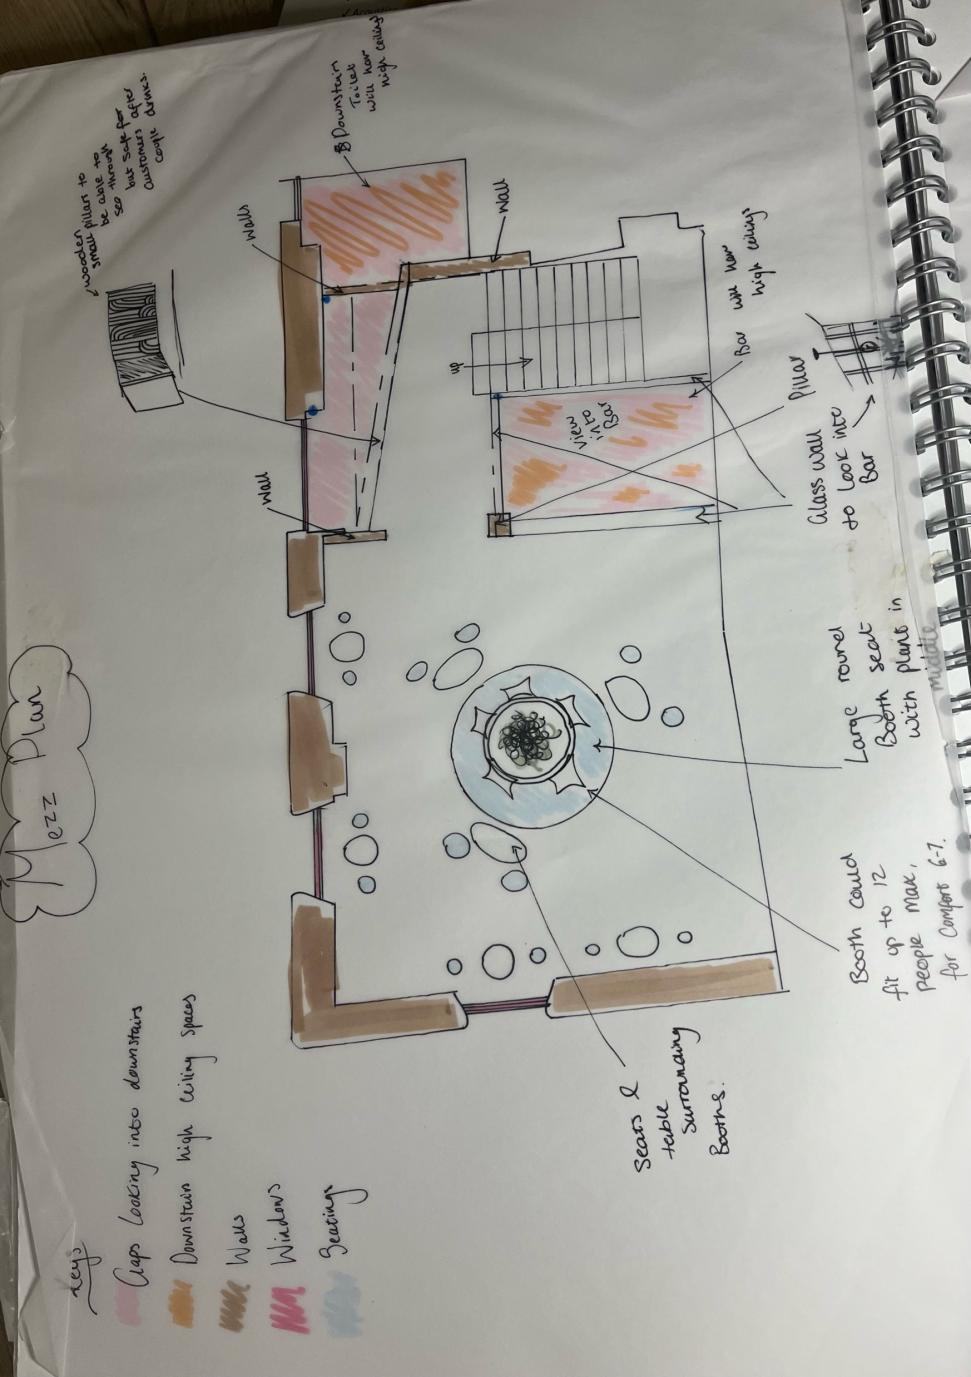 Mezz Plan
wooden
small pillars to
be able to
see through
but safe for
customers after
couple drinks.
Downstairs
Toilet
will have
high ceiling
Walls
Wall
Wall
up
view
into
Bar
Bar will have
high ceilings
Pillar
Glass wall
to look into
Bar
Large round
Booth seat
with plant in
middle
Booth could
fit up to 12
people max,
for comfort 6-7.
Seats &
table
surrounding
Booths.
Keys
Gaps looking into downstairs
Downstairs high ceiling spaces
Walls
Windows
Seatings